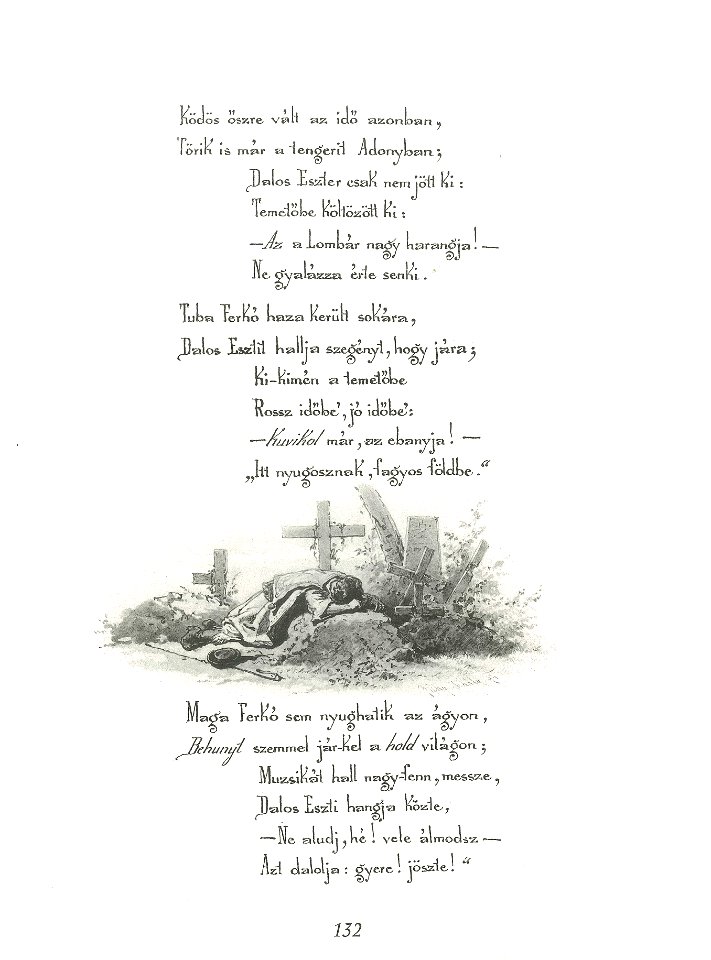 Ködös őszre vált az idő azonban,
Törik is már a tengerit Adonyban;
Dalos Eszter csak nem jött ki:
Temetőbe költözött ki:
—Az a Lombár nagy harangja!—
Ne gyalázza érte senki.
Tuba Ferkó haza került sokára,
Dalos Esztit hallja szegényt, hogy jára;
Ki-kimén a temetőbe
Rossz időbe', jó időbe':
—Kuvikol már, az ebanyja! —
„Itt nyugosznak, fagyos földbe."
Maga Ferkó sem nyughatik az ágyon,
Behunyt szemmel jár-kel a hold világon;
Muzsikát hall nagy-fenn, messze,
Dalos Eszti hangja közte,
—Ne aludj, hé! vele álmodsz—
Azt dalolja: gyere! jöszte! "
132